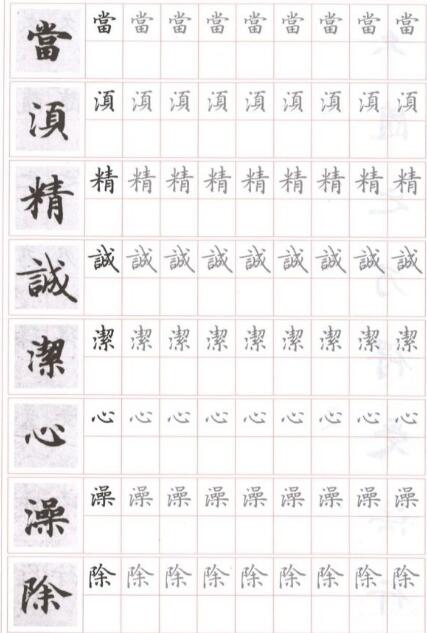 當 當 當 當 當 當 當 當 當 當
湏 湏 湏 湏 湏 湏 湏 湏 湏 湏
精 精 精 精 精 精 精 精 精 精
誠 誠 誠 誠 誠 誠 誠 誠 誠 誠
潔 潔 潔 潔 潔 潔 潔 潔 潔 潔
心 心 心 心 心 心 心 心 心 心
澡 澡 澡 澡 澡 澡 澡 澡 澡 澡
除 除 除 除 除 除 除 除 除 除